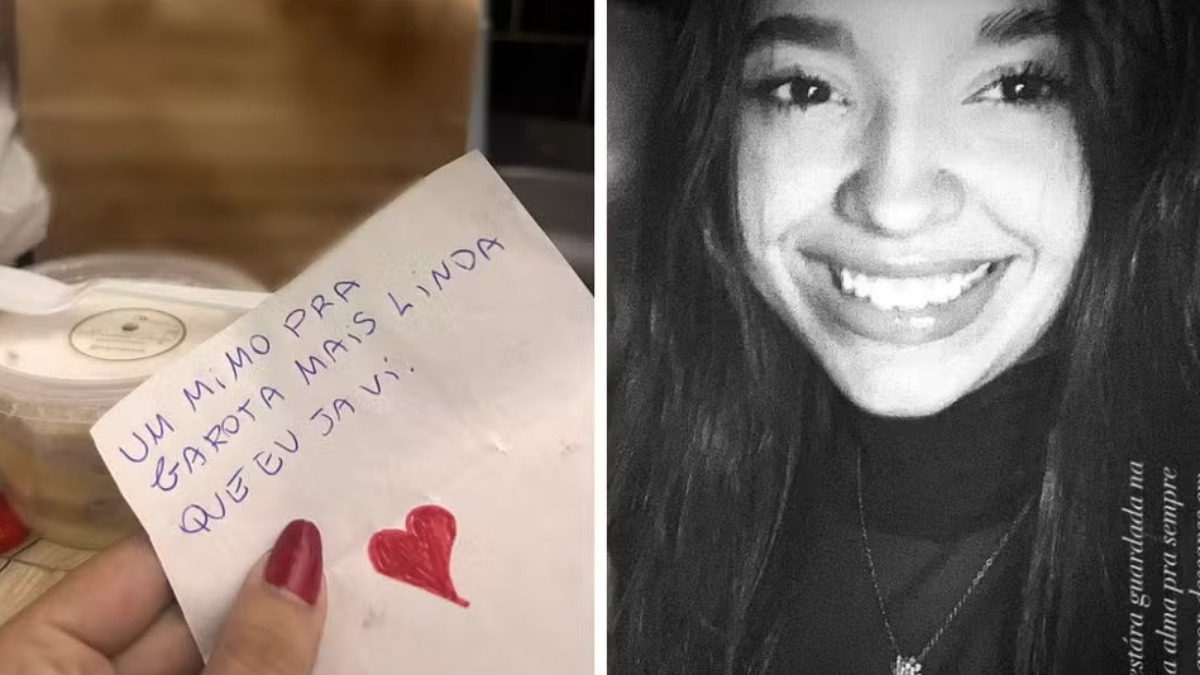 UM MIMO PRA
GAROTA MAIS LINDA
QUE EU JA VI.
estára guardada na
a alma pra sempre